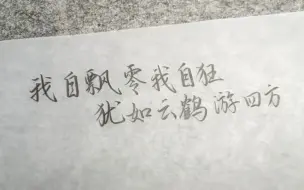 我自飘零我自狂
犹如云鹤游四方